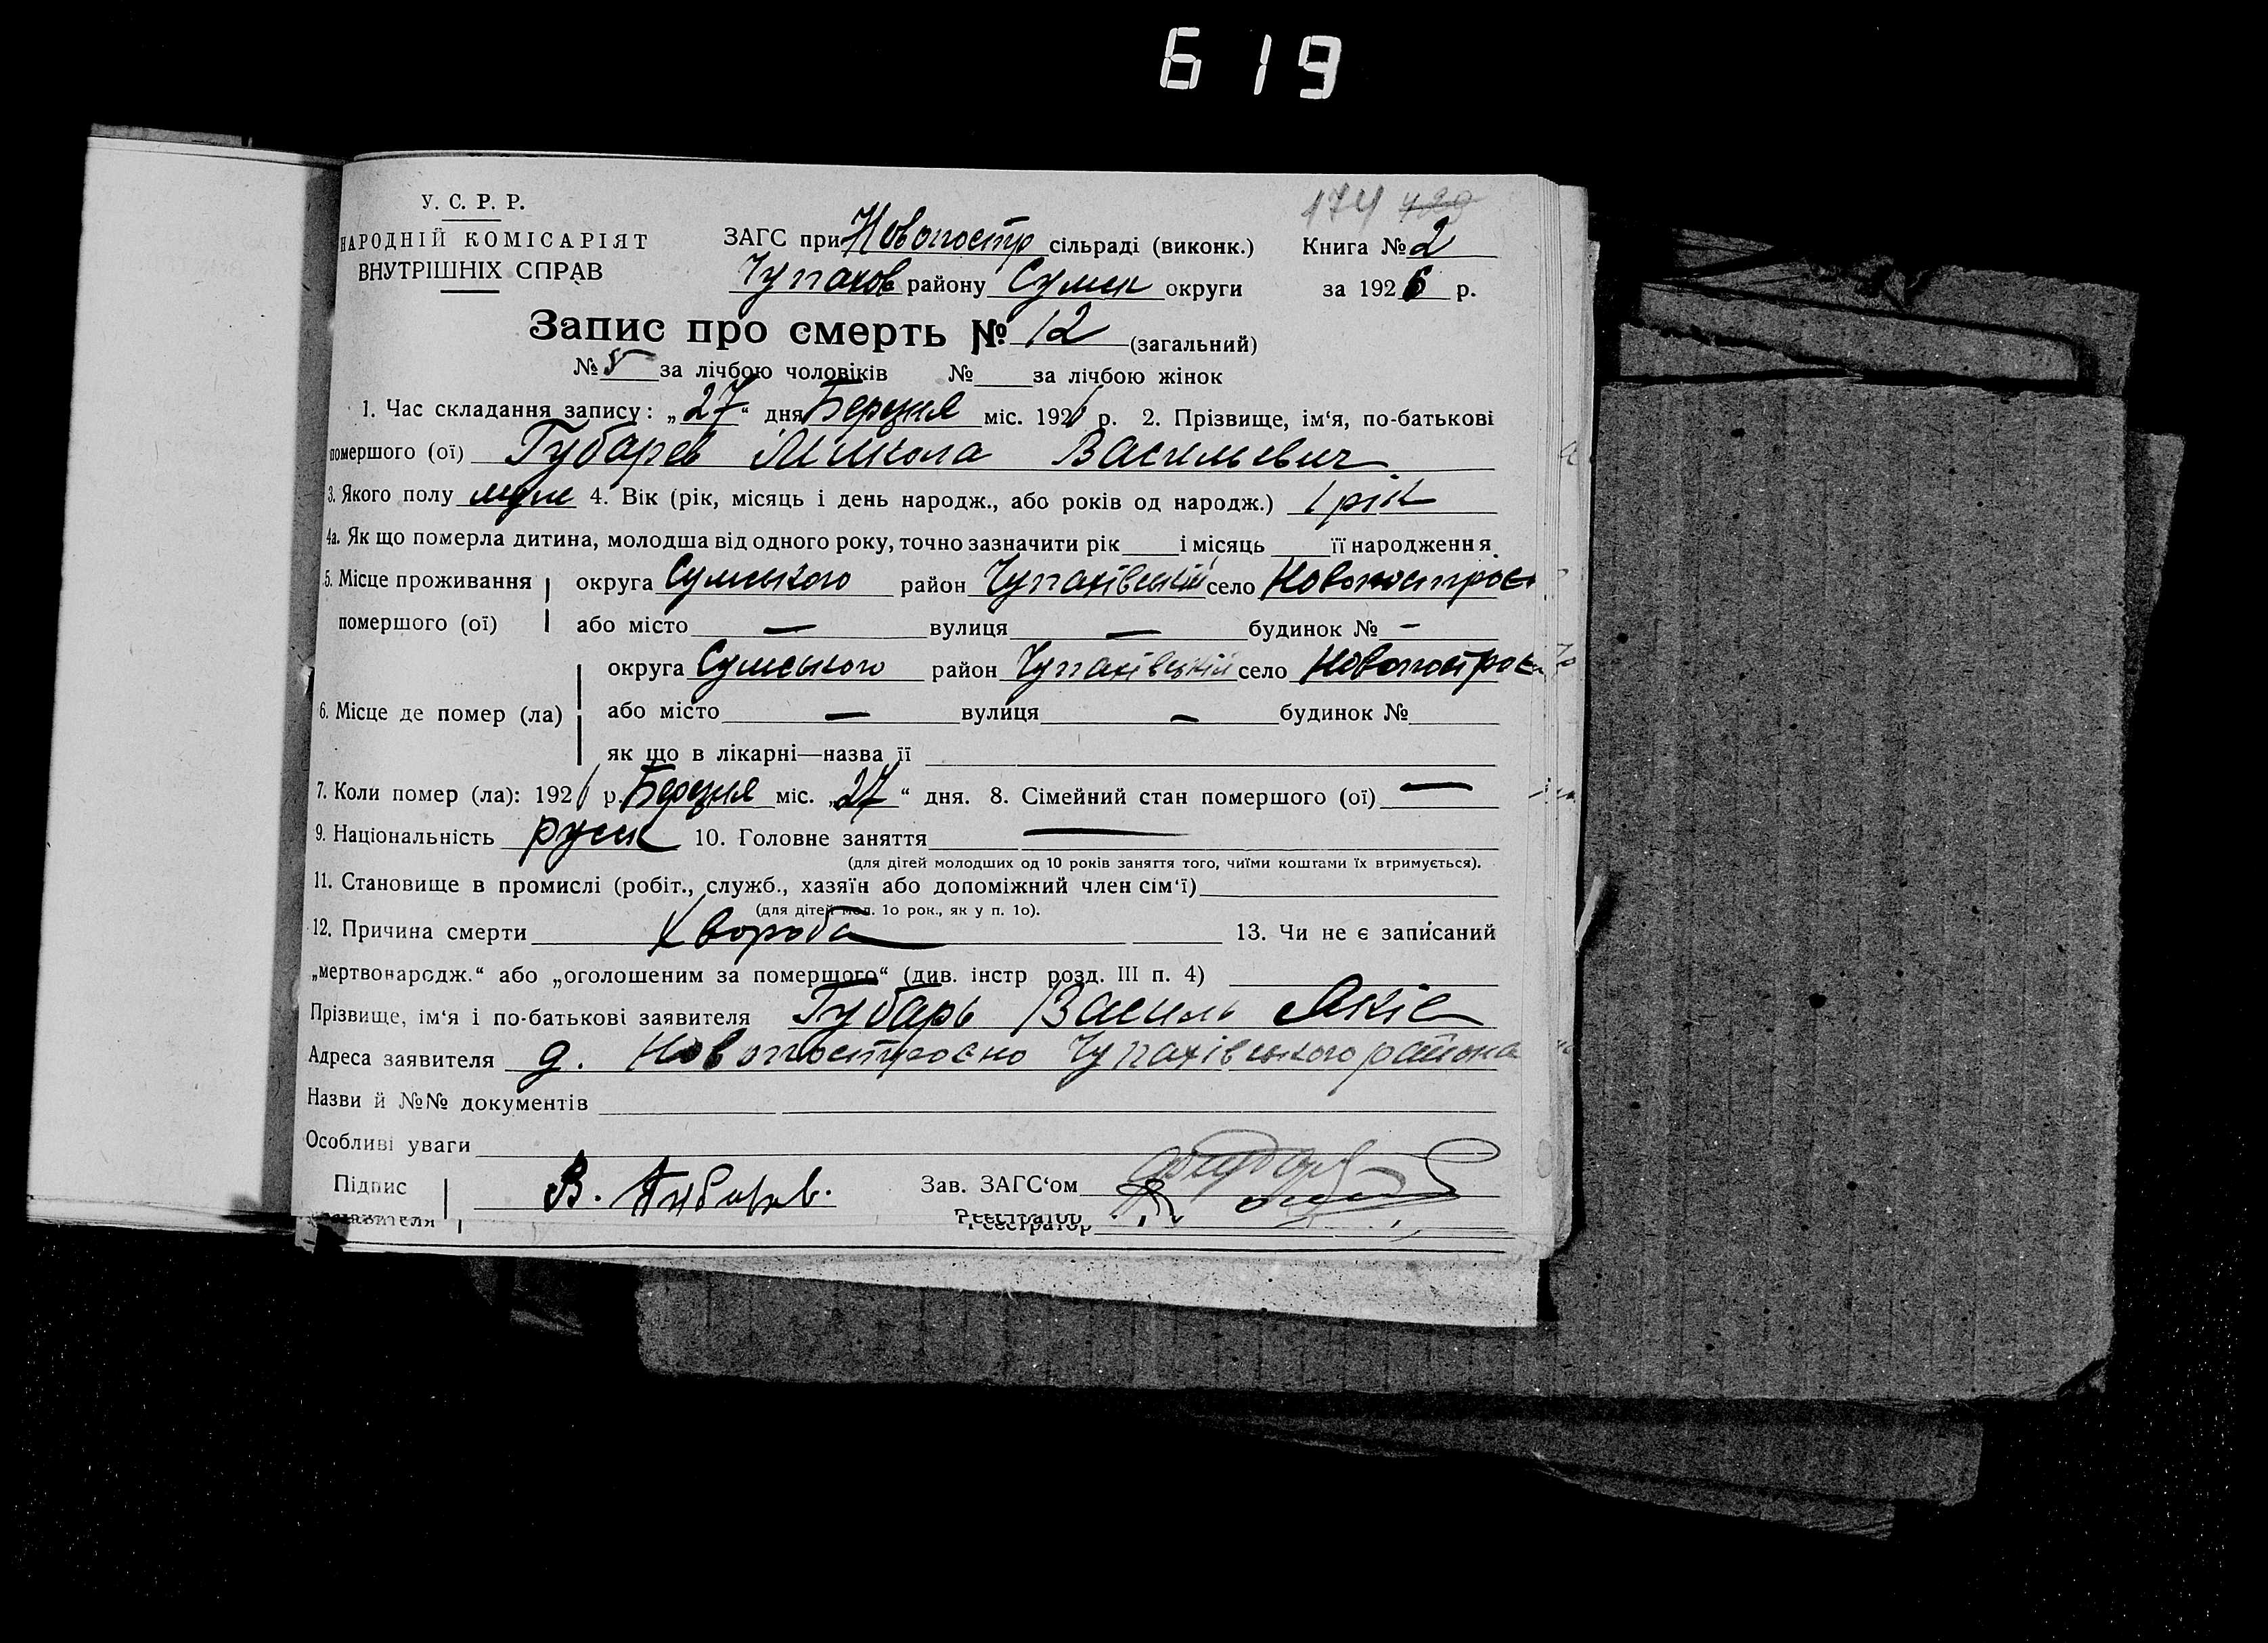 619
174 420
У. С. Р. Р.
НАРОДНІЙ КОМІСАРІЯТ
ВНУТРІШНІХ СПРАВ
ЗАГС при Новопостр сільраді (виконк.) Книга № 2
Чупахов району Сумск округи за 1926 р.
Запис про смерть № 12 (загальний)
№ 5 за лічбою чоловіків № за лічбою жінок
1. Час складання запису: „27“ дня Березня міс. 1926 р. 2. Прізвище, ім‘я, по-батькові
помершого (ої) Губарев Микола Васильевич
3. Якого полу муж 4. Вік (рік, місяць і день народж., або років од народж.) 1 рік
4а. Як що померла дитина, молодша від одного року, точно зазначити рік і місяць її народження.
5. Місце проживання округа Сумського район Чупахівській село Новопостроє
помершого (ої) або місто — вулиця — будинок № —
округа Сумського район Чупахівській село Новопостроє
6. Місце де помер (ла) або місто — вулиця — будинок №
як що в лікарні—назва її
7. Коли помер (ла): 1926 р. Березня міс. „27“ дня. 8. Сімейний стан помершого (ої) —
9. Національність руск 10. Головне заняття —
(для дітей молодших од 10 років заняття того, чиїми коштами їх втримується).
11. Становище в промислі (робіт., служб., хазяїн або допоміжний член сім‘ї)
(для дітей мол. 1о рок., як у п. 1о).
12. Причина смерти Хвороба 13. Чи не є записаний
„мертвонародж.“ або „оголошеним за помершого“ (див. інстр розд. III п. 4)
Прізвище, ім‘я і по-батькові заявителя Губарь Василь
Адреса заявителя д. Новопостроєно Чупахівського района
Назви й №№ документів
Особливі уваги
Підпис В. Губарев. Зав. ЗАГС‘ом
заявителя Реєстратор